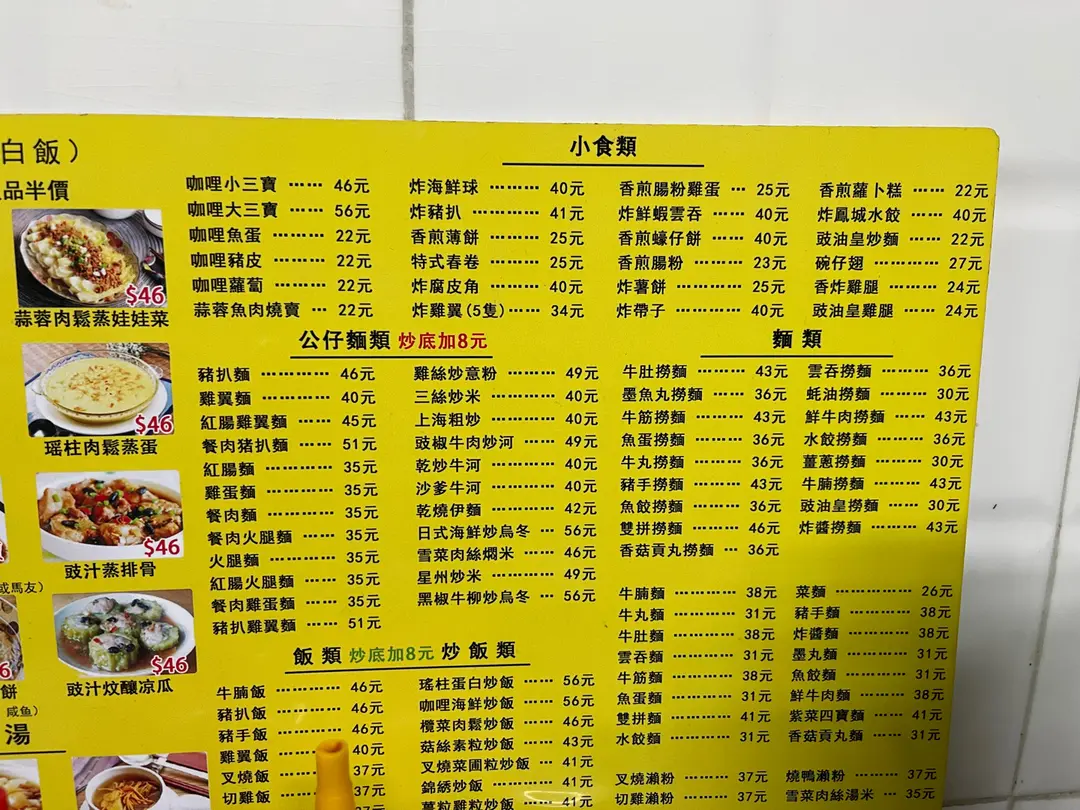 白飯）
品半價
$46
蒜蓉肉鬆蒸娃娃菜
$46
瑶柱肉鬆蒸蛋
$46
豉汁蒸排骨
或馬友）
$46
豉汁炆釀凉瓜
餅
咸鱼）
湯
小食類
咖哩小三寶 …… 46元
咖哩大三寶 …… 56元
咖哩魚蛋 ……… 22元
咖哩豬皮 ……… 22元
咖哩蘿蔔 ……… 22元
蒜蓉魚肉燒賣 … 22元
炸海鮮球 ……… 40元
炸豬扒 ………… 41元
香煎薄餅 ……… 25元
特式春卷 ……… 25元
炸腐皮角 ……… 40元
炸雞翼(5隻)…… 34元
香煎腸粉雞蛋 … 25元
炸鮮蝦雲吞 …… 40元
香煎蠔仔餅 …… 40元
香煎腸粉 ……… 23元
炸薯餅 ………… 25元
炸帶子 ………… 40元
香煎蘿卜糕 …… 22元
炸鳳城水餃 …… 40元
豉油皇炒麵 …… 22元
碗仔翅 ………… 27元
香炸雞腿 ……… 24元
豉油皇雞腿 …… 24元
公仔麵類 炒底加8元
豬扒麵 ………… 46元
雞翼麵 ………… 40元
紅腸雞翼麵 …… 45元
餐肉猪扒麵 …… 51元
紅腸麵 ………… 35元
雞蛋麵 ………… 35元
餐肉麵 ………… 35元
餐肉火腿麵 …… 35元
火腿麵 ………… 35元
紅腸火腿麵 …… 35元
餐肉雞蛋麵 …… 35元
豬扒雞翼麵 …… 51元
雞絲炒意粉 ……… 49元
三絲炒米 ………… 40元
上海粗炒 ………… 40元
豉椒牛肉炒河 …… 49元
乾炒牛河 ………… 40元
沙爹牛河 ………… 40元
乾燒伊麵 ………… 42元
日式海鮮炒烏冬 … 56元
雪菜肉絲燜米 …… 46元
星州炒米 ………… 49元
黑椒牛柳炒烏冬 … 56元
麵類
牛肚撈麵 ……… 43元
墨魚丸撈麵 …… 36元
牛筋撈麵 ……… 43元
魚蛋撈麵 ……… 36元
牛丸撈麵 ……… 36元
豬手撈麵 ……… 43元
魚餃撈麵 ……… 36元
雙拼撈麵 ……… 46元
香菇貢丸撈麵 … 36元
雲吞撈麵 ……… 36元
蚝油撈麵 ……… 30元
鮮牛肉撈麵 …… 43元
水餃撈麵 ……… 36元
薑蔥撈麵 ……… 30元
牛腩撈麵 ……… 43元
豉油皇撈麵 …… 30元
炸醬撈麵 ……… 43元
牛腩麵 ………… 38元
牛丸麵 ………… 31元
牛肚麵 ………… 38元
雲吞麵 ………… 31元
牛筋麵 ………… 38元
魚蛋麵 ………… 31元
雙拼麵 ………… 41元
水餃麵 ………… 31元
菜麵 …………… 26元
豬手麵 ………… 38元
炸醬麵 ………… 38元
墨丸麵 ………… 31元
魚餃麵 ………… 31元
鮮牛肉麵 ……… 38元
紫菜四寶麵 …… 41元
香菇貢丸麵 …… 31元
燒鴨瀨粉 ……… 37元
雪菜肉絲湯米 … 35元
叉燒瀨粉 ……… 37元
切雞瀨粉 ……… 37元
飯類 炒底加8元 炒飯類
牛腩飯 ………… 46元
豬扒飯 ………… 46元
豬手飯 ………… 46元
雞翼飯 40元
叉燒飯 37元
切雞飯 37元
瑤柱蛋白炒飯 …… 56元
咖哩海鮮炒飯 …… 56元
欖菜肉鬆炒飯 …… 46元
菇絲素粒炒飯 …… 43元
叉燒菜圃粒炒飯 … 41元
錦綉炒飯 ………… 41元
41元